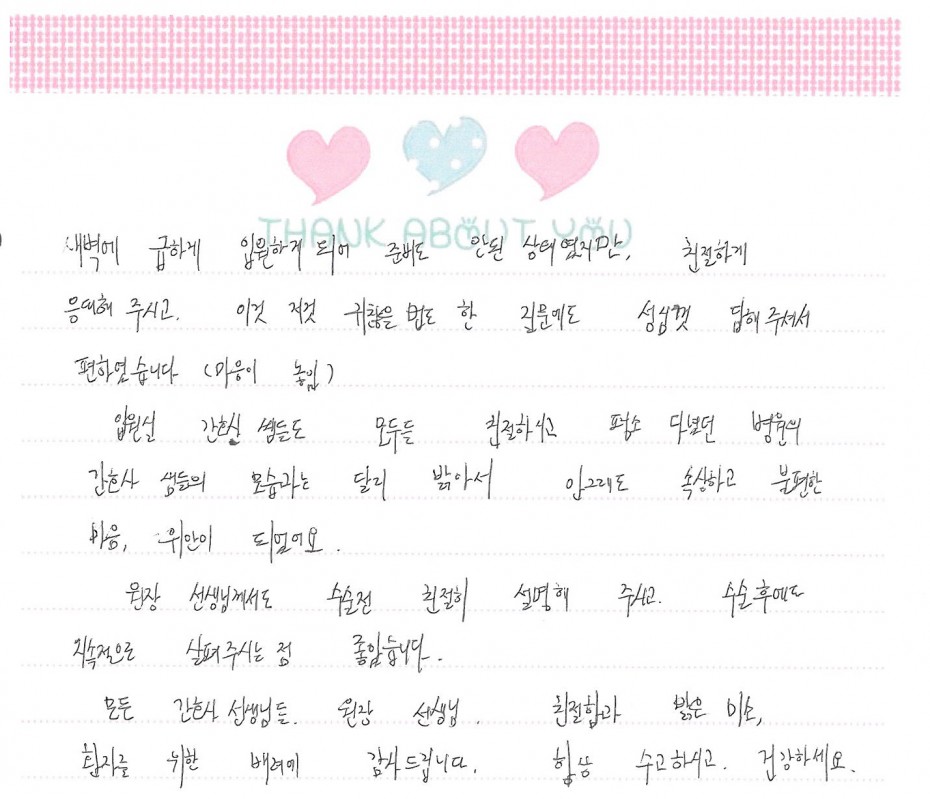 THANK ABOUT YOU
새벽에 급하게 입원하게 되어 준비도 안된 상태였지만, 친절하게
응대해 주시고. 이것 저것 귀찮을 법도 한 질문에도 성심껏 답해주셔서
편하였습니다 (마음이 놓임)
입원실 간호실 쌤들도 모두들 친절하시고 평소 다녔던 병원의
간호사 샘들의 모습과는 달리 밝아서 안그래도 속상하고 불편한
마음, 위안이 되었어요.
원장 선생님께서도 수술전 친절히 설명해 주시고. 수술후에도
지속적으로 살펴주시는 점 좋았습니다.
모든 간호사 선생님들. 원장 선생님. 친절함과 밝은 미소,
환자를 위한 배려에 감사드립니다. 항상 수고하시고. 건강하세요.